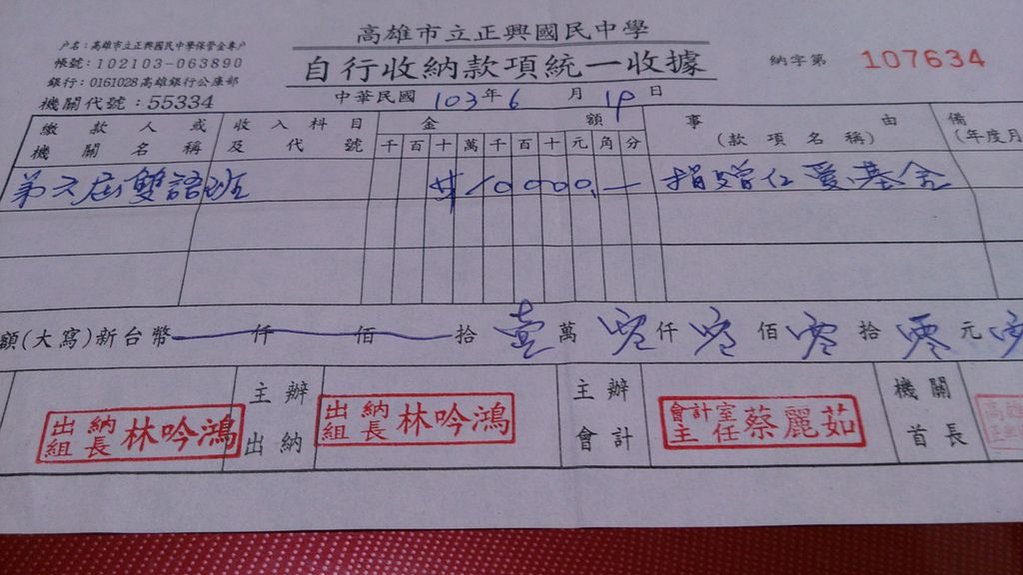 高雄市立正興國民中學
戶名：高雄市立正興國民中學保管金專戶
帳號：102103-063890
銀行：0161028高雄銀行公庫部
機關代號：55334
自行收納款項統一收據
納字第 107634
中華民國 103年 6 月 19 日
繳款人或機關名稱 收入科目及代號 金額 事由 備
千 百 十 萬 千 百 十 元 角 分 (款項名稱) (年度月
第六屆雙語班 $10000.— 捐贈仁愛基金
額(大寫)新台幣 仟 佰 拾 壹 萬 零 仟 零 佰 零 拾 零 元
出納組長 林吟鴻 主辦出納 出納組長 林吟鴻 主辦會計 會計室主任 蔡麗茹 機關首長